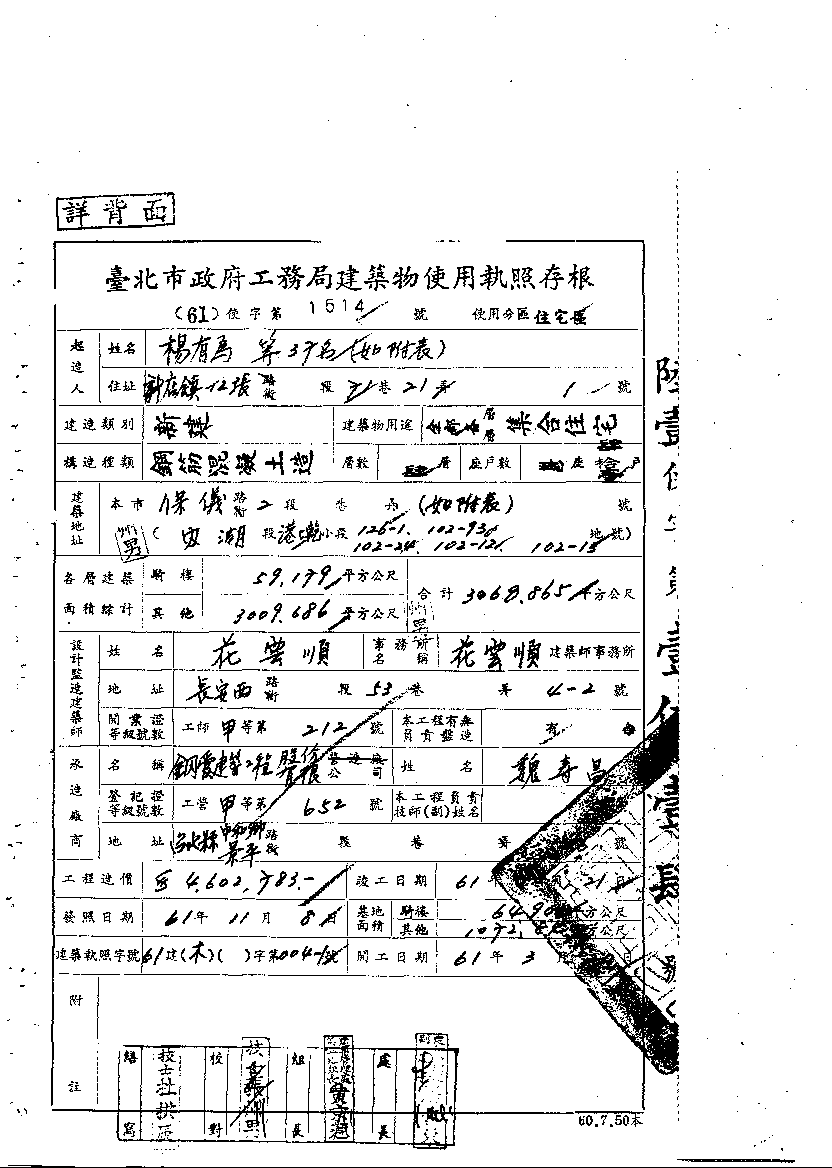 詳背面
臺北市政府工務局建築物使用執照存根
(61)使字第1514號 使用分區住宅區
起造人 姓名 楊有為 等37名(如附表)
住址 新店鎮 十二張 路街 段 巷 21弄 1號
建造類別 新建 建築物用途 全部各層 集合住宅
構造種類 鋼筋混凝土造 層數 肆層 座戶數 座 戶
建築地址 本市 保儀 路街 2段 巷 弄 (如附表) 號
( 內湖 段 小段 126-1. 102-93 地號)
102-24. 102-121. 102-15
各層建築面積綜計 騎樓 59.179平方公尺 合計 3068.865平方公尺
其他 3009.686平方公尺
設計監造建築師 姓名 花雲順 事務所名稱 花雲順建築師事務所
地址 長安西 路街 段 53巷 弄 4-2號
開業證等級號數 工師甲等第212號 本工程有無員責監造 有
承造廠商 名稱 建築工程股份有限公司 營造廠 姓名 魏壽昌
登記證等級號數 工營甲等第652號 本工程員責技師(副)姓名
地址 中和鄉 景平 路街 段 巷 號
工程造價 4,602,783.- 竣工日期 61年 21日
發照日期 61年11月8日 基地面積 騎樓 平方公尺
其他 平方公尺
建築執照字號 61建(木)( )字第004-1號 開工日期 61年3月 日
附註
繕寫 技士杜 校對 組長 處長
60.7.50本
陸壹使字第壹伍壹肆號